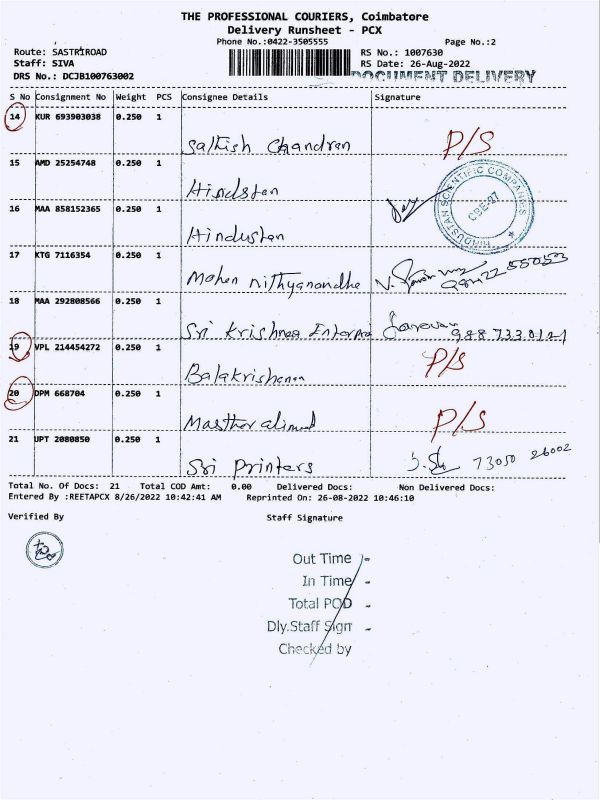 THE PROFESSIONAL COURIERS, Coimbatore
Delivery Runsheet - PCX
Phone No.:0422-3505555 Page No.:2
Route: SASTRIROAD RS No.: 1007630
Staff: SIVA RS Date: 26-Aug-2022
DRS No.: DCJB100763002 DOCUMENT DELIVERY
S No Consignment No Weight PCS Consignee Details Signature
14 KUR 693903038 0.250 1
Sathish Chandran P/S
15 AMD 25254748 0.250 1
Hindsten
HINDUSTAN SCIENTIFIC COMPANIES
CBE-27
16 MAA 858152365 0.250 1
Hindustan
17 KTG 7116354 0.250 1
Mohen nithyanandhe
18 MAA 292808566 0.250 1
Sri Krishnaa Enterpra Saravan 988 7330121
19 VPL 214454272 0.250 1 P/S
Balakrishanan
20 DPM 668704 0.250 1
P/S
21 UPT 2080850 0.250 1
Sri Printers 73050 26002
Total No. Of Docs: 21 Total COD Amt: 0.00 Delivered Docs: Non Delivered Docs:
Entered By :REETAPCX 8/26/2022 10:42:41 AM Reprinted On: 26-08-2022 10:46:10
Verified By Staff Signature
Out Time :-
In Time -
Total POD -
Dly.Staff Sign -
Checked by